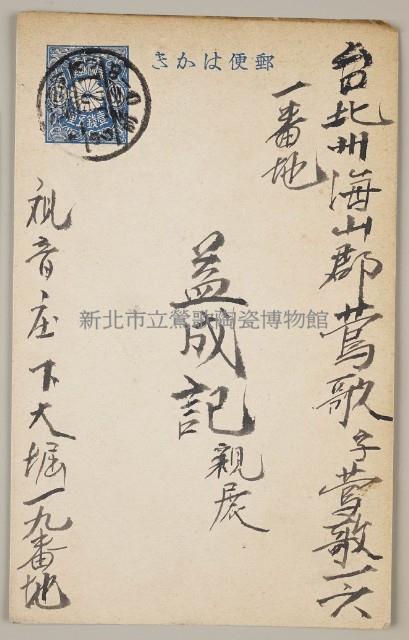 郵便はかき
台北州海山郡鶯歌字鶯歌一六
一番地
益成記 親展
観音庄下大堀一九番地
新北市立鶯歌陶瓷博物館